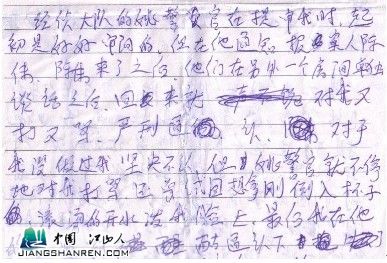 经侦大队的姚警官在提审我时,起
初是好好审问的,但在他通知报案人陈
伟、陈来了之后,他们在另外一个房间单独
谈话之后,回来就对我又
打又骂,严刑逼认,对于
我没做过我坚决不认,但姚警官就不停
地对我打骂还拿
滚烫的开水泼我脸上,最后我在他
的酷逼认下
中国江山人
JIANGSHANREN.COM